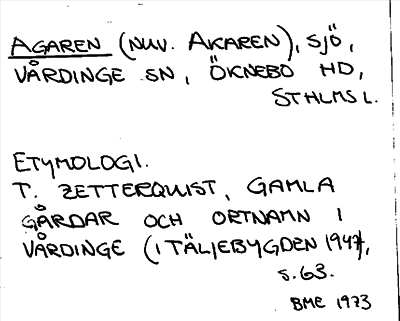 AGAREN (NUV. AKAREN), SJÖ,
VÅRDINGE SN, ÖKNEBO HD,
STHLMS L.
ETYMOLOGI.
T. ZETTERQVIST, GAMLA
GÅRDAR OCH ORTNAMN I
VÅRDINGE (I TÄLJEBYGDEN 1947,
S. 63.
BME 1973